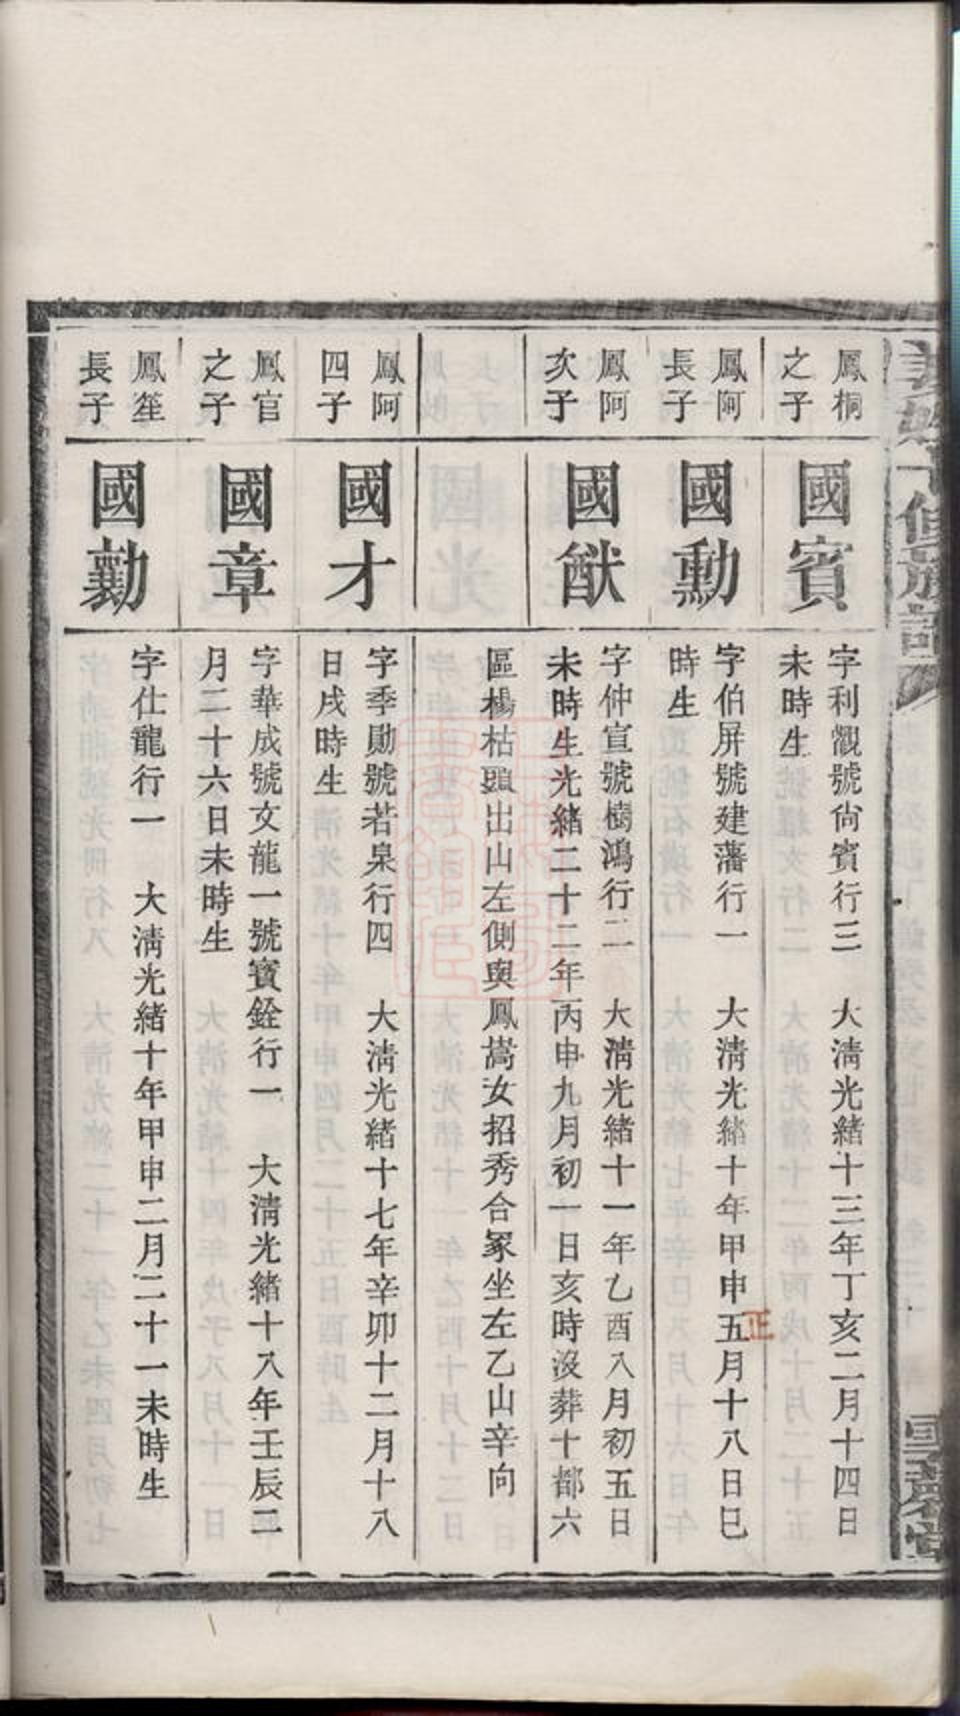 鳳桐
之子
國賓
字利觀號尙賓行三 大淸光緒十三年丁亥二月十四日
未時生
鳳阿
長子
國勳
字伯屏號建藩行一 大淸光緒十年甲申五月十八日巳
時生
正
鳳阿
次子
國猷
字仲宣號樹鴻行二 大淸光緒十一年乙酉八月初五日
未時生光緒二十二年丙申九月初一日亥時沒葬十都六
區楊枯頭出山左側與鳳嵩女招秀合冢坐左乙山辛向
鳳阿
四子
國才
字季勛號若泉行四 大淸光緒十七年辛卯十二月十八
日戌時生
鳳官
之子
國章
字華成號文龍一號寶銓行一 大淸光緒十八年壬辰二
月二十六日未時生
鳳笙
長子
國勷
字仕龍行一 大淸光緒十年甲申二月二十一未時生